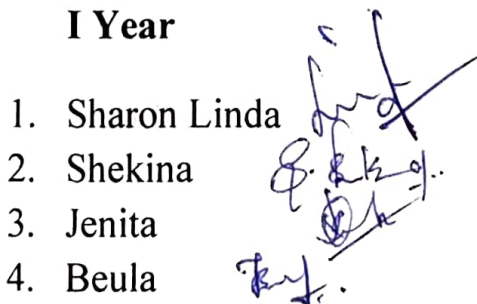 I Year
1. Sharon Linda
2. Shekina
3. Jenita
4. Beula